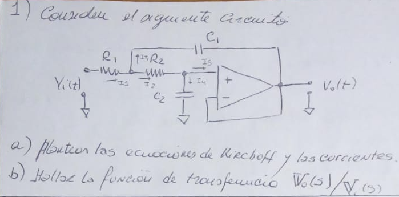 1) Considere el siguiente circuito
C1
R1 R2
Vi(t) C2 Vo(t)
a) Plantear las ecuaciones de Kirchoff y las corrientes.
b) Hallar la función de transferencia Vo(s)/Vi(s)